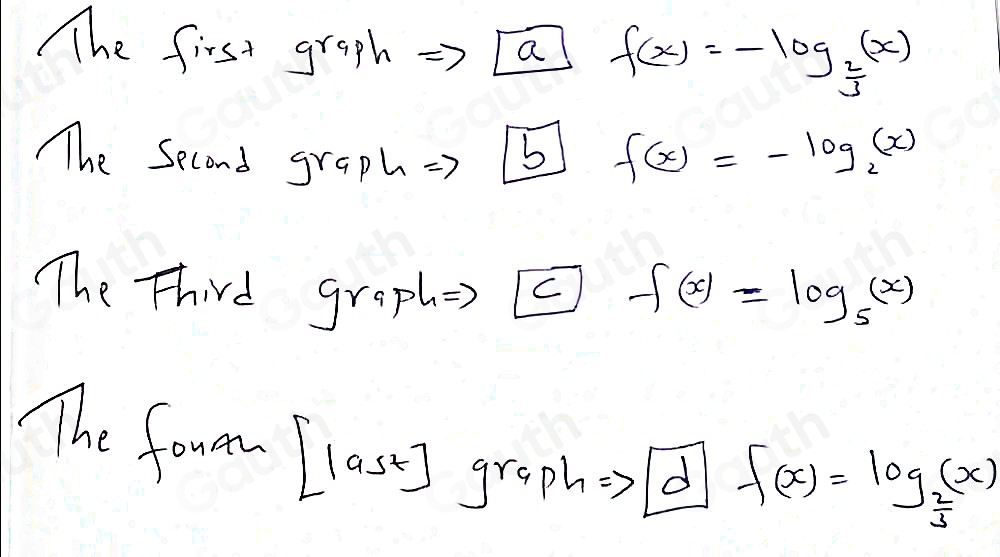 The first graph => a f(x) = -log_{2/3}(x)
The Second graph => b f(x) = -log_2(x)
The Third graph => c f(x) = log_5(x)
The fourth [last] graph => d f(x) = log_{2/3}(x)